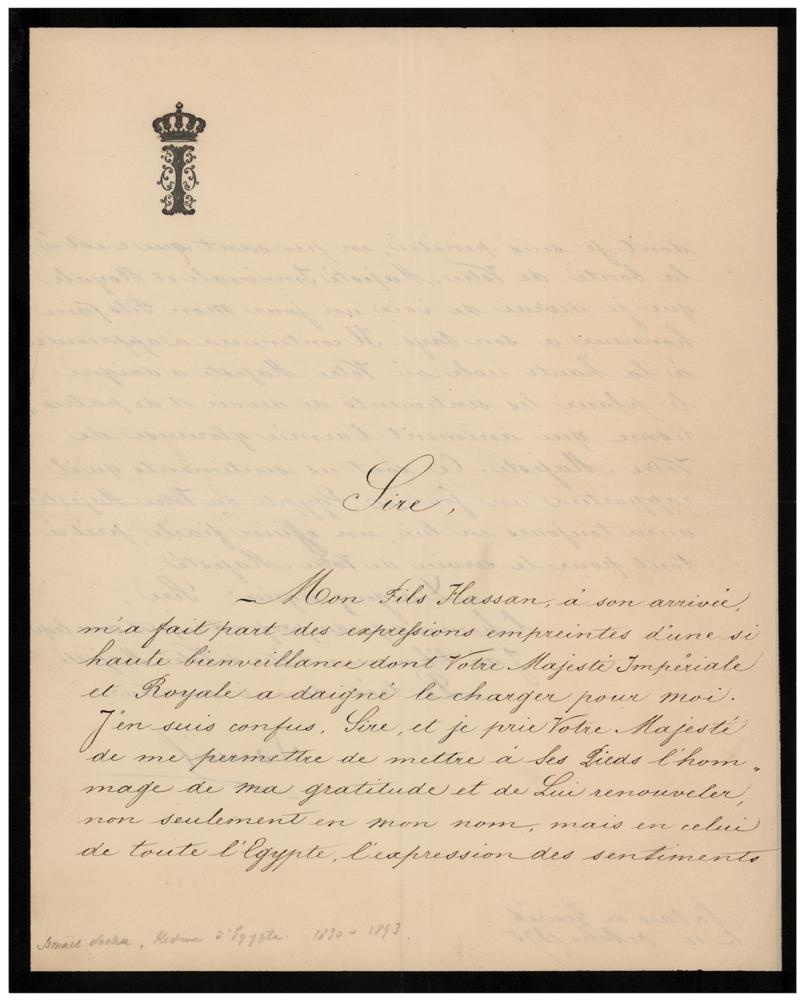 Sire,
Mon Fils Hassan, à son arrivée,
m'a fait part des expressions empreintes d'une si
haute bienveillance dont Votre Majesté Impériale
et Royale a daigné le charger pour moi.
J'en suis confus, Sire, et je prie Votre Majesté
de me permettre de mettre à Ses Pieds l'hom„
mage de ma gratitude et de Lui renouveler,
non seulement en mon nom, mais en celui
de toute l'Egypte, l'expression des sentiments
Ismaël , d'Egypte. 1830 - 1893.